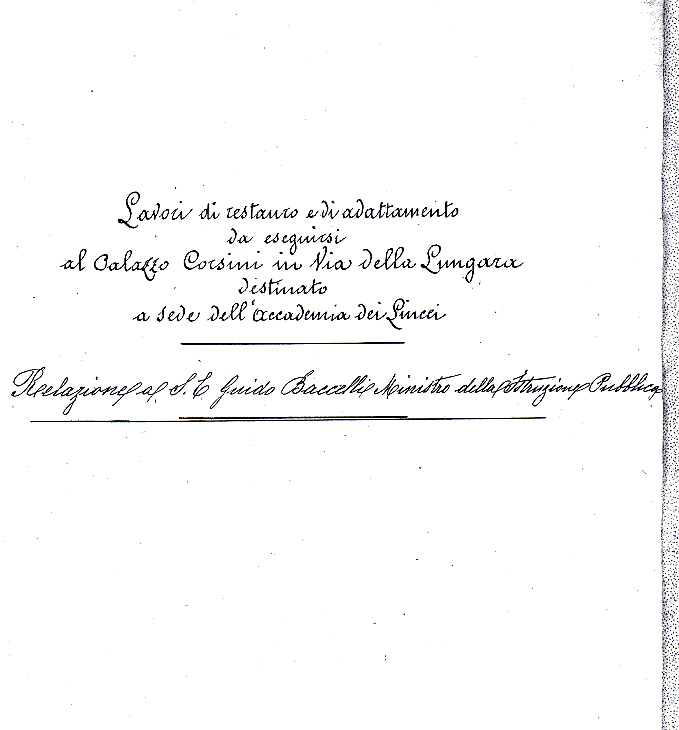 Lavori di restauro e di adattamento
da eseguirsi
al Palazzo Corsini in Via della Lungara
destinato
a sede dell'Accademia dei Lincei
Relazione a S. E Guido Baccelli Ministro della Istruzione Pubblica